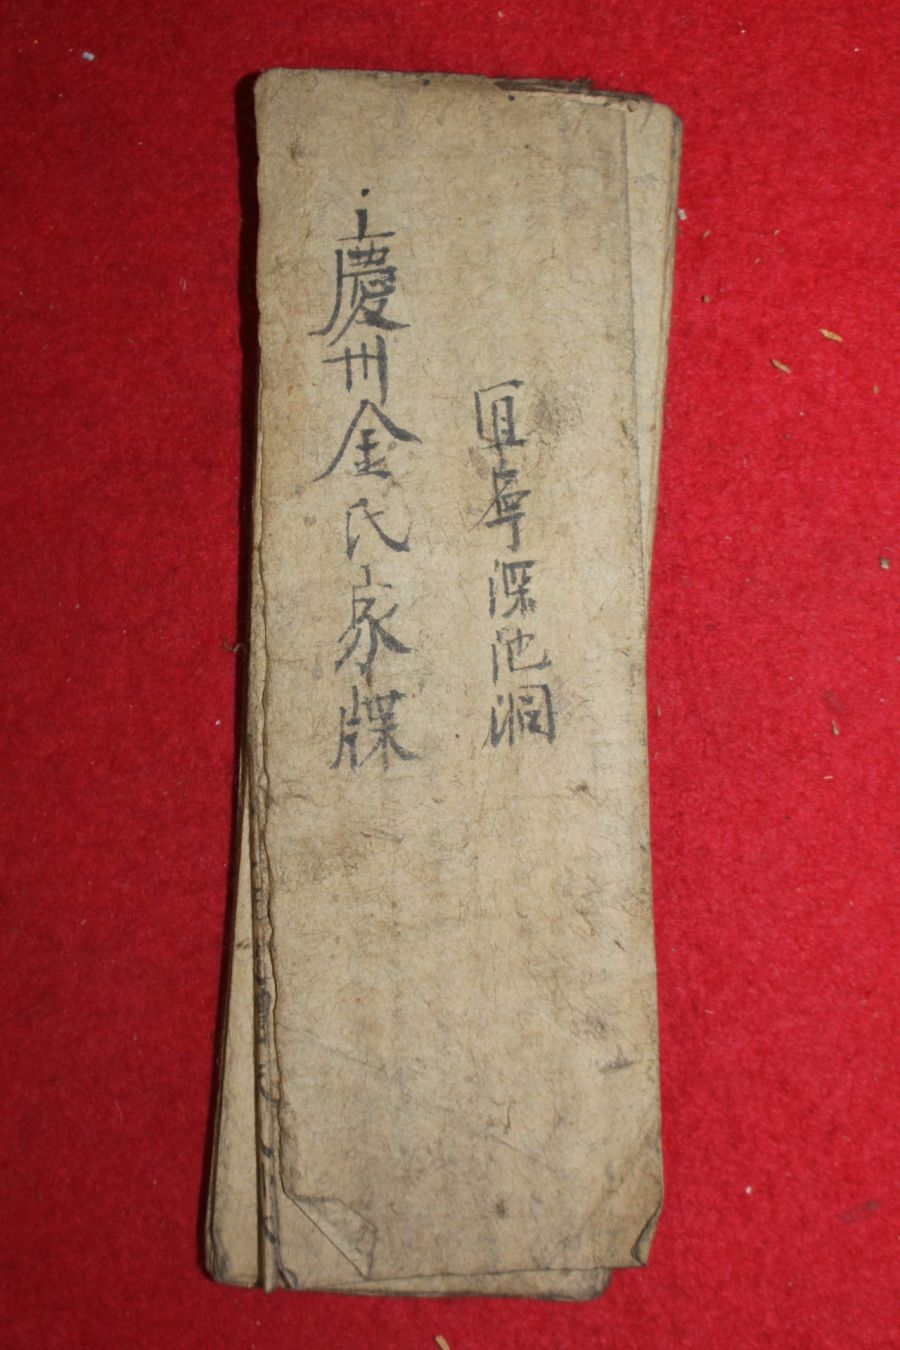 宜寧深池洞
慶州金氏家牒